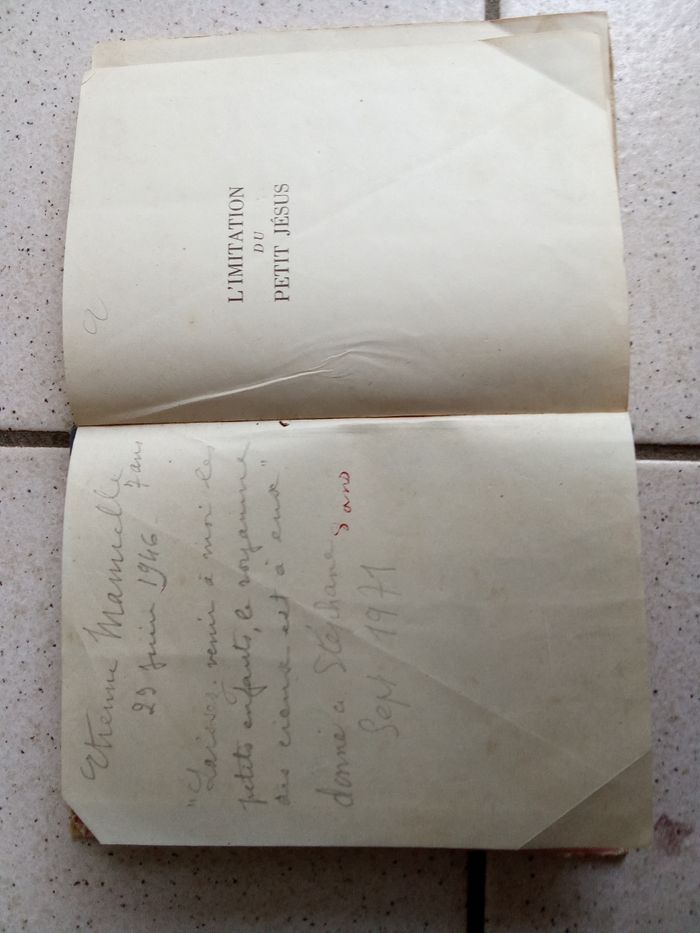 Etienne
7 ans
29 Juin 1946
"Laissez venir à moi les
petits enfants, le royaume
des cieux est à eux"
donné à Stéphane 8 ans
Sept 1971
L'IMITATION
DU
PETIT JÉSUS